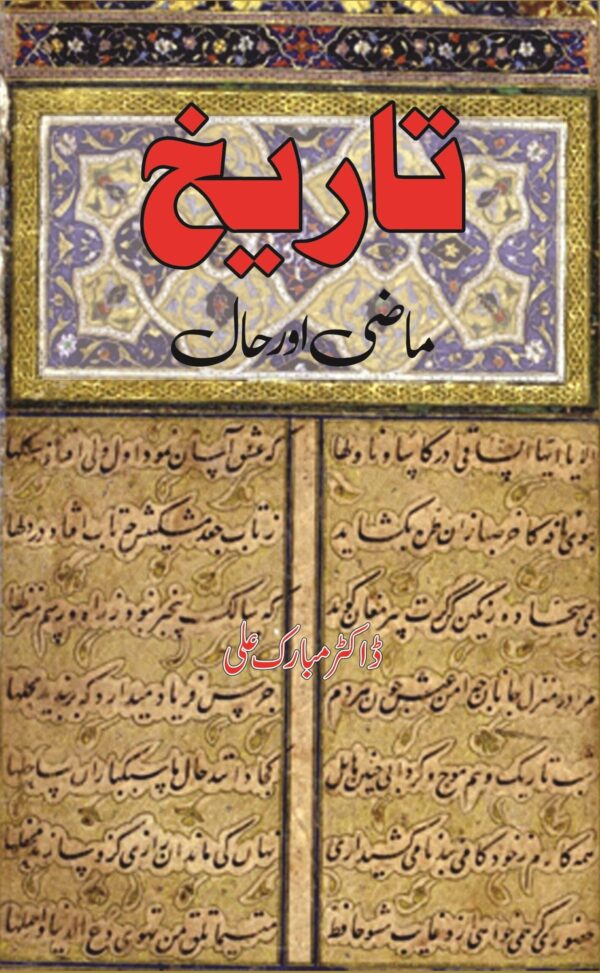 تاریخ
ماضی اور حال
الا یا ایها الساقی ادر کاسا و ناولها که عشق آسان نمود اول ولی افتاد مشکلها
ببوی نافه کاخر صبا زان طره بگشاید ز تاب جعد مشکینش چه تاب افتاد در دلها
بمی سجاده رنگین کن گرت پیر مغان گوید که سالک بیخبر نبود ز راه و رسم منزلها
ڈاکٹر مبارک علی
مرا در منزل جانان چه امن عیش چون هر دم جرس فریاد میدارد که بربندید محملها
شب تاریک و بیم موج و گردابی چنین هایل کجا دانند حال ما سبکباران ساحلها
همه کارم ز خود کامی ببدنامی کشید آری نهان کی ماند آن رازی کزو سازند محفلها
حضوری گر همی خواهی ازو غایب مشو حافظ متی ما تلق من تهوی دع الدنیا و اهملها